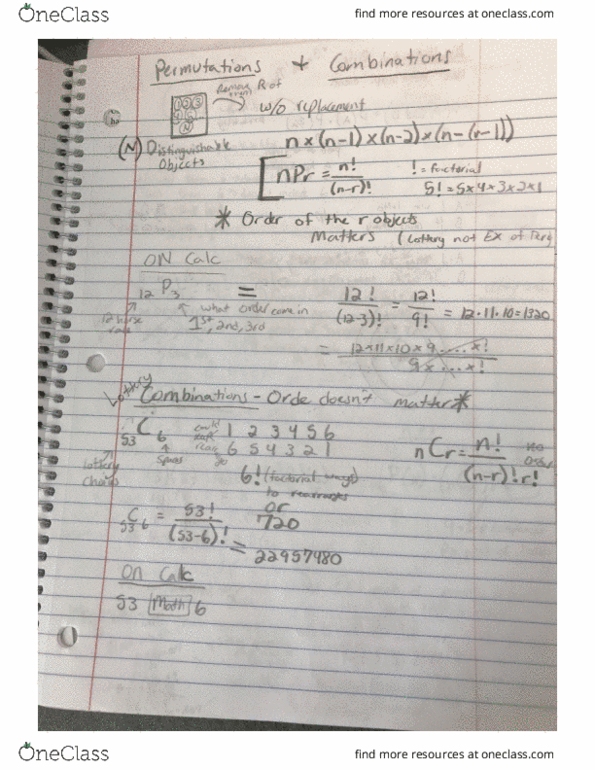 OneClass
find more resources at oneclass.com
Permutations + Combinations
Remove R of
from
1 2 3
4 5
N
w/o replacement
(N) Distinguishable
Objects
n x (n-1) x (n-2) x (n-(r-1))
nPr = n! / (n-r)!
! = factorial
5! = 5x4x3x2x1
* Order of the r objects
Matters (Lottery not Ex of Perg
ON Calc
12 P 3 = 12! / (12-3)! = 12! / 9! = 12·11·10=1320
12 horse
race
what order come in
1st, 2nd, 3rd
= 12x11x10x9.....x! / 9x...x!
Lottery
Combinations - Orde doesn't matter*
53 C 6
could 1 2 3 4 5 6
6 5 4 3 2 1
lottery
6! (factorial ways)
to rearrange
or
720
nCr = n! / (n-r)!r!
no
order
53 C 6 = 53! / (53-6)! = 22957480
ON Calc
53 Math 6
OneClass
find more resources at oneclass.com